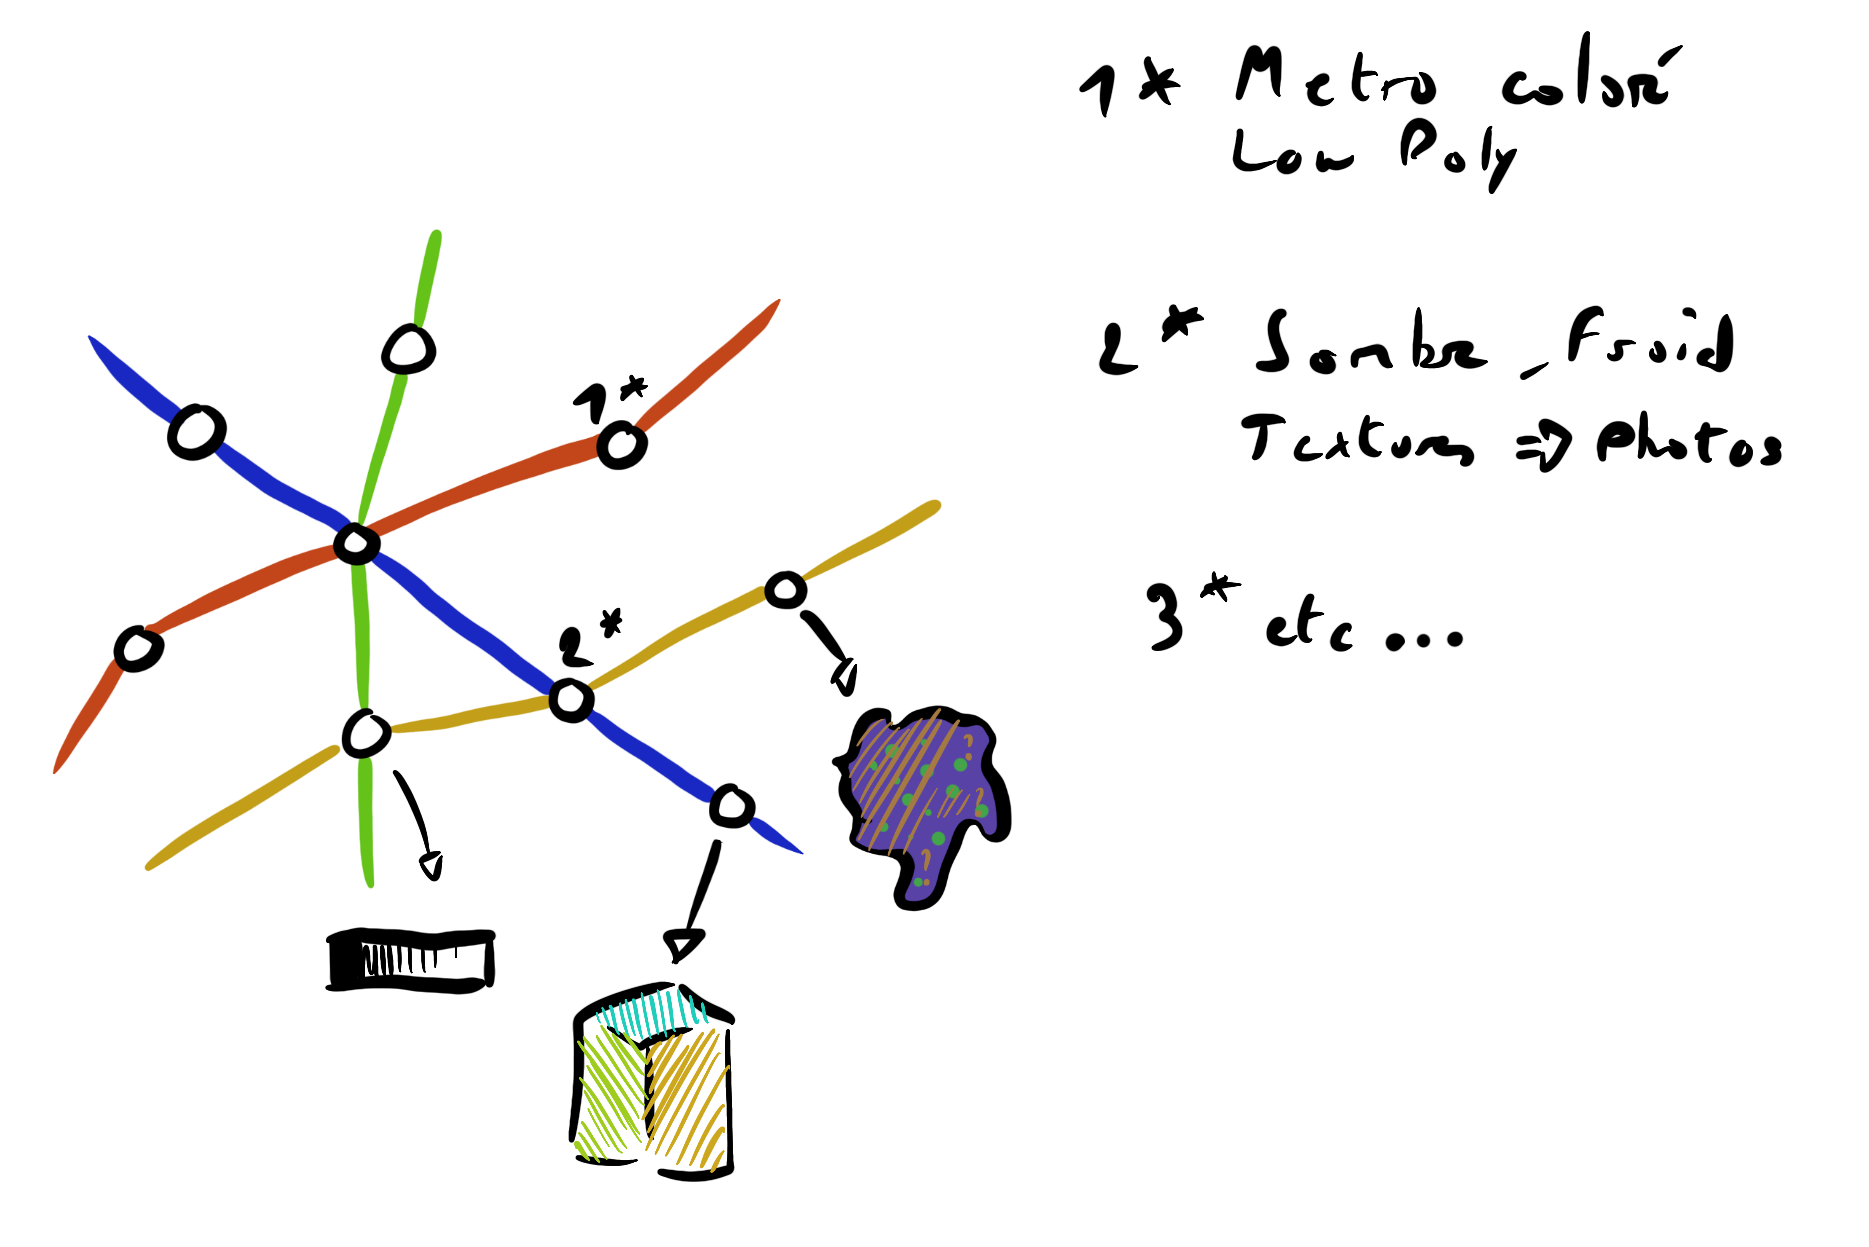 1* Metro coloré
Low Poly
2* Sombre, Froid
Textures => Photos
3* etc...
1*
2*